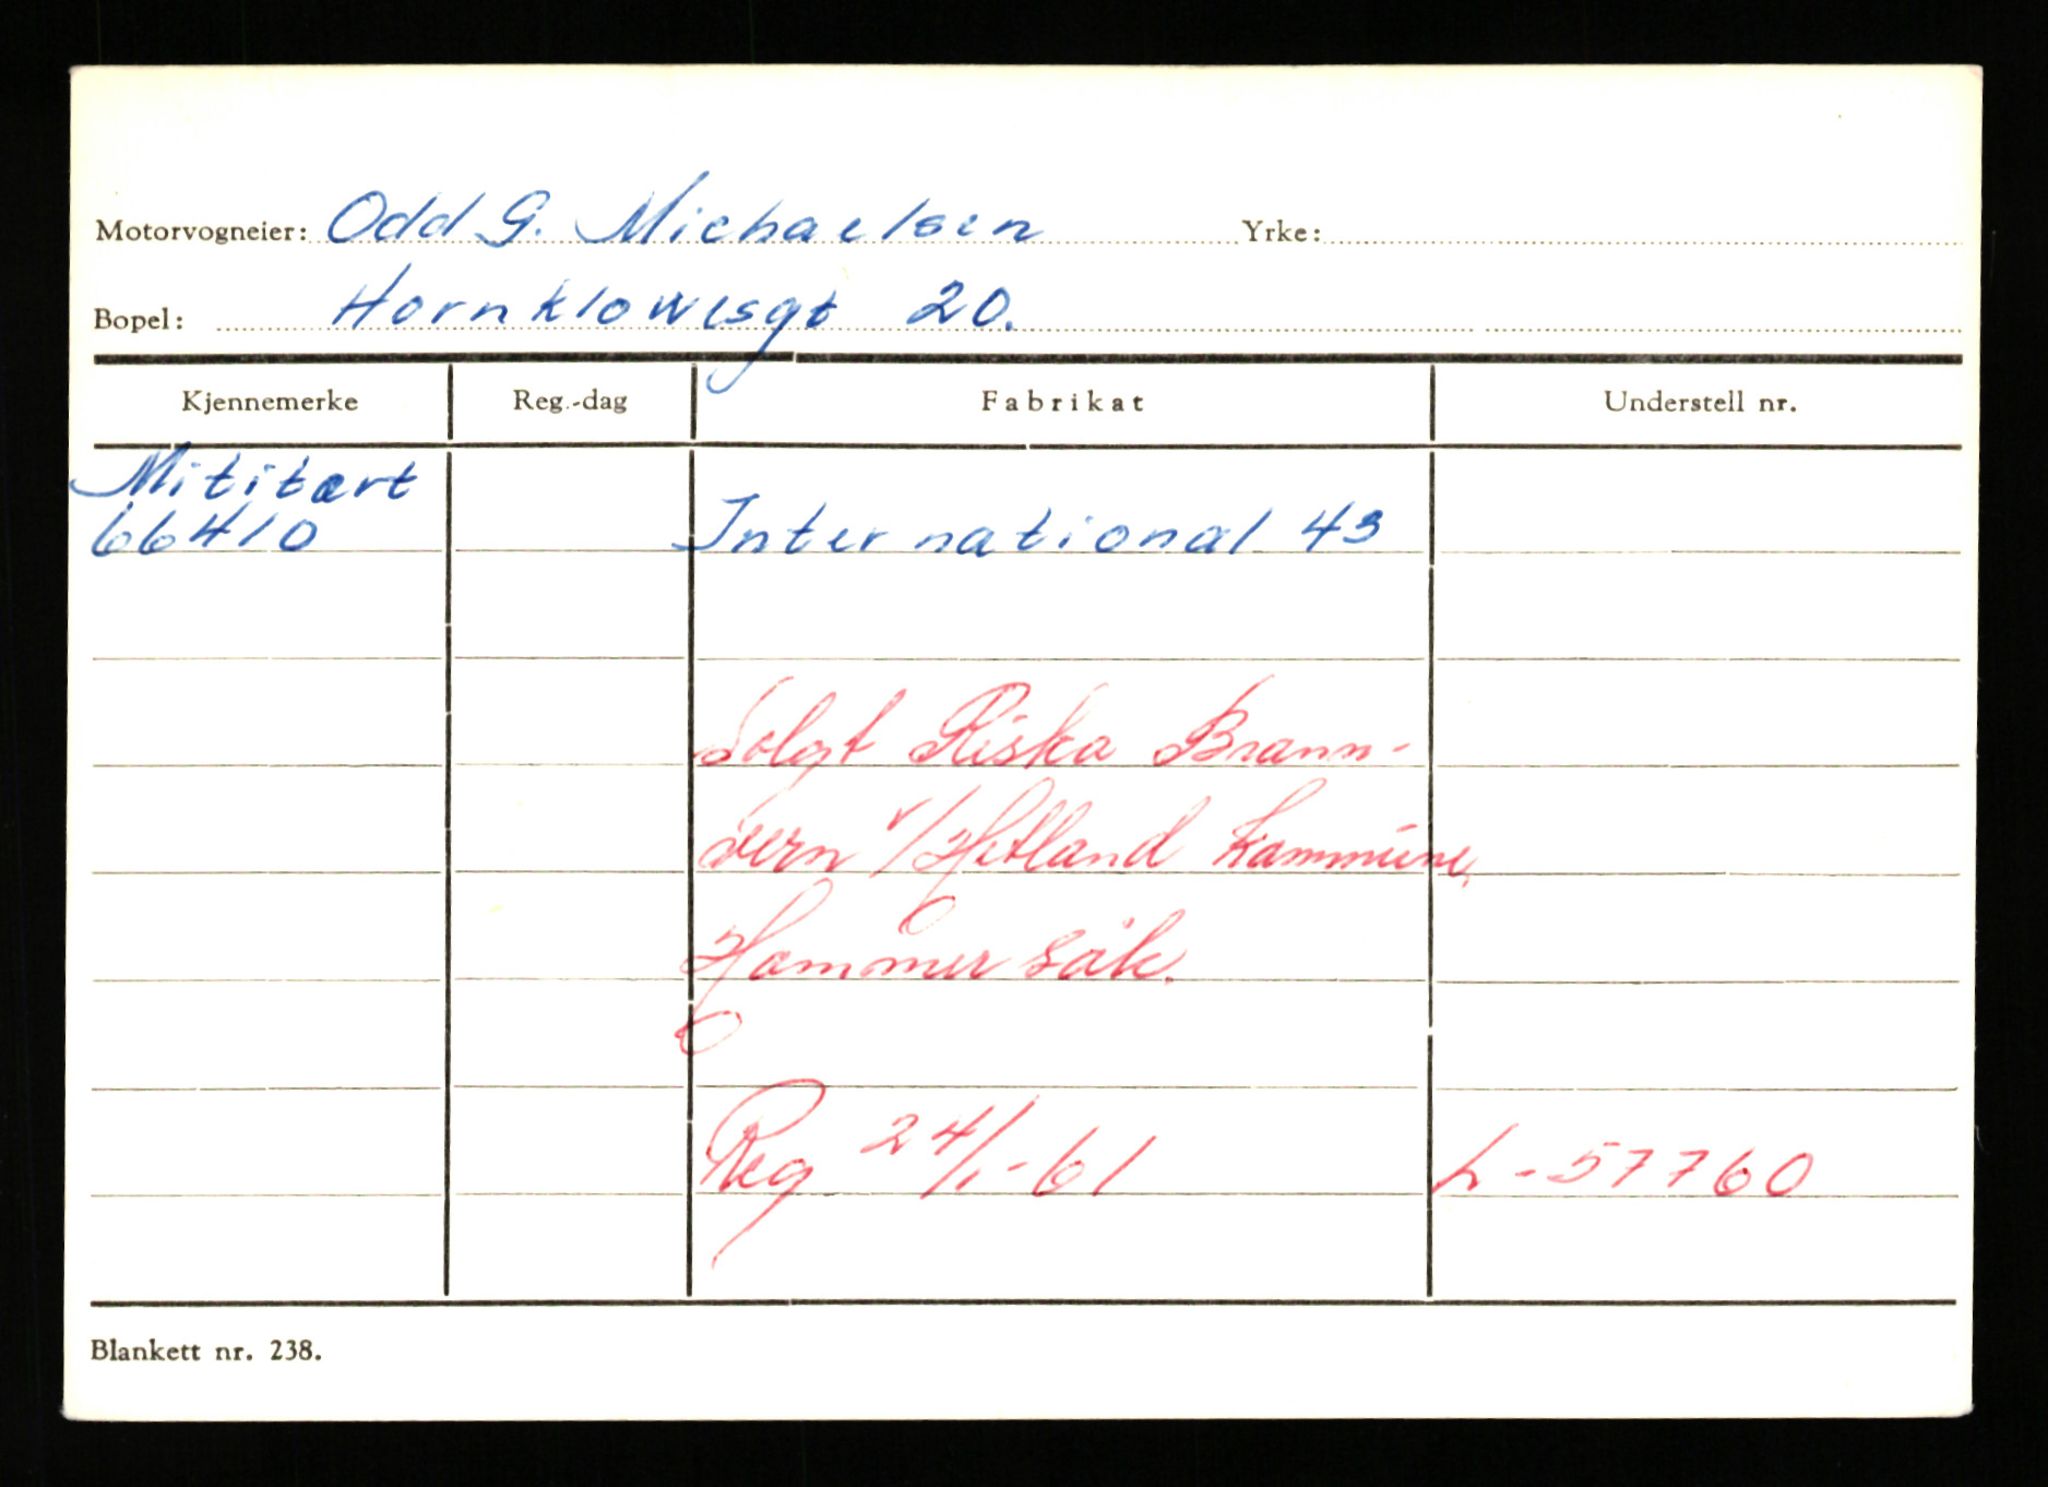 Motorvogneier: Odd G. Michaelsen Yrke:
Bopel: Hornklowisgt 20.
Kjennemerke Reg.-dag Fabrikat Understell nr.
Mititært
66410 International 43
Solgt Riska Brann-
vern v/Hetland kommune,
Hommersåk.
Reg 24/1-61 L-57760
Blankett nr. 238.